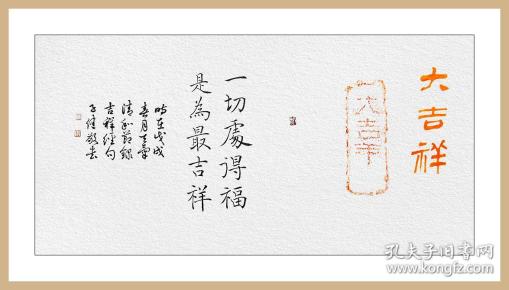 大吉祥
大吉羊
一切處得福
是為最吉祥
時在戊戌
春月天氣
清和節錄
吉祥經句
孔夫子旧书网
www.kongfz.com